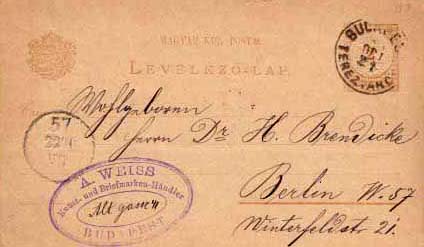 MAGYAR KIR. POSTA
LEVELEZŐ-LAP.
BUDAPEST
TERÉZVÁROS
Wohlgeboren
Herrn Dr H. Brendicke
57
A. WEISS
Kunst- und Briefmarken-Händler
BUDAPEST
Berlin W. 57
Winterfeldstr 21.